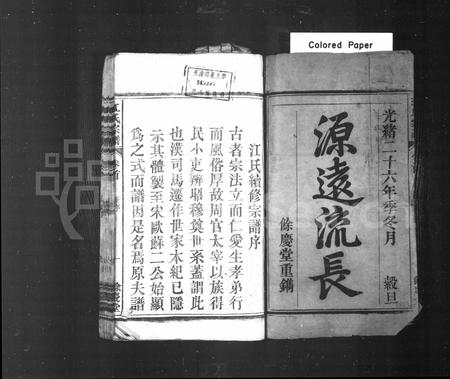 Colored Paper
光緒二十六年季冬月 穀旦
源遠流長
餘慶堂重鐫
江氏續修宗譜序
古者宗法立而仁愛生孝弟行
而風俗厚故周官太宰以族得
民小吏辨昭穆奠世系蓋謂此
也漢司馬遷作世家本紀已隱
示其體製至宋歐蘇二公始顯
為之式而譜因是名焉原夫譜